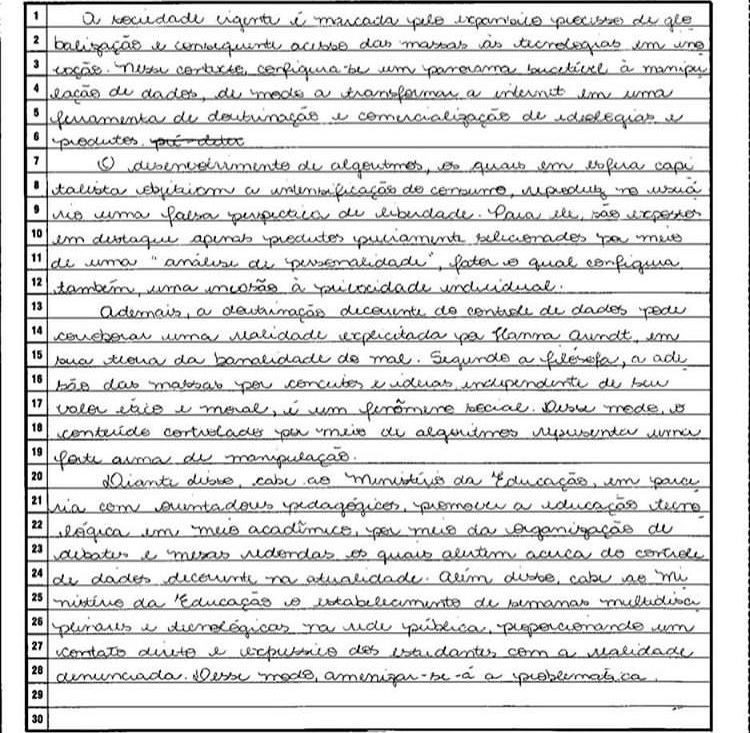 1 A sociedade vigente é marcada pelo expansivo processo de glo
2 balização e consequente acesso das massas às tecnologias em ino
3 vação. Nesse contexto, configura-se um panorama sucetível à manipu
4 lação de dados, de modo a transformar a internet em uma
5 ferramenta de doutrinação e comercialização de ideologias e
6 produtos.
7 O desenvolvimento de algoritmos, os quais em esfera capi
8 talista objetivam a intensificação do consumo, reproduz no usuá
9 rio uma falsa perspectiva de liberdade. Para ele, são expostos
10 em destaque apenas produtos previamente selecionados por meio
11 de uma "análise de personalidade", fator o qual configura,
12 também, uma invasão à privacidade individual.
13 Ademais, a doutrinação decorrente do controle de dados pode
14 corroborar uma realidade explicitada por Hanna Arendt, em
15 sua teoria da banalidade do mal. Segundo a filósofa, a ade
16 são das massas por conceitos e ideias, independente de seu
17 valor ético e moral, é um fenômeno social. Desse modo, o
18 conteúdo controlado por meio de algoritmos representa uma
19 forte arma de manipulação.
20 Diante disso, cabe ao Ministério da Educação, em parce
21 ria com orientadores pedagógicos, promover a educação tecno
22 lógica em meio acadêmico, por meio da organização de
23 debates e mesas redondas os quais alertem acerca do controle
24 de dados decorrente na atualidade. Além disso, cabe ao Mi
25 nistério da Educação o estabelecimento de semanas multidisci
26 plinares e tecnológicas na rede pública, proporcionando um
27 contato direto e expressivo dos estudantes com a realidade
28 denunciada. Desse modo, amenizar-se-á a problemática.
29
30